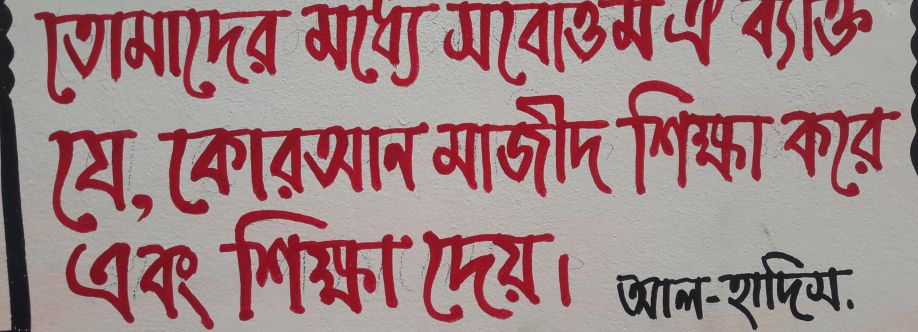 তোমাদের মধ্যে সর্বোত্তম ঐ ব্যক্তি
যে, কোরআন মাজীদ শিক্ষা করে
এবং শিক্ষা দেয়।
আল-হাদিস.